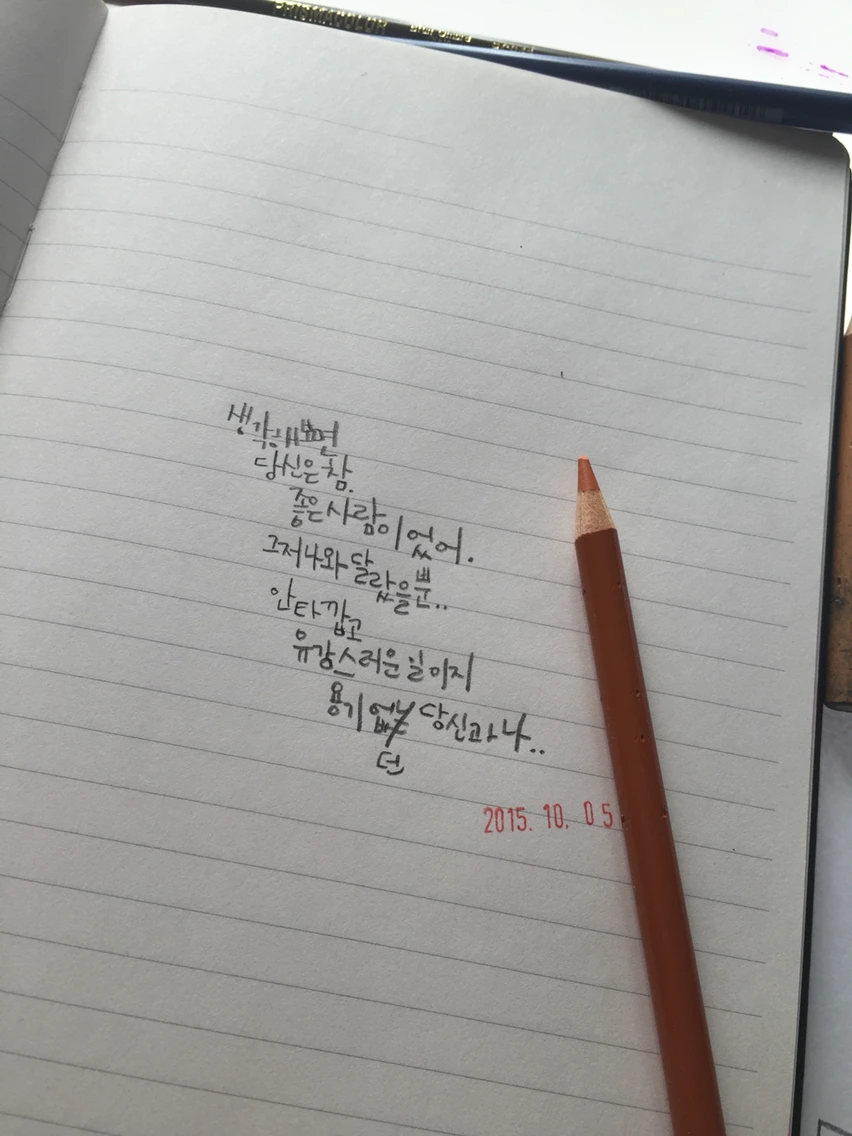 PRISMACOLOR
생각해보면
당신은 참.
좋은 사람이었어.
그저 나와 달랐을 뿐..
안타깝고
유감스러운 일이지
용기 없던 당신과 나..
2015. 10. 05